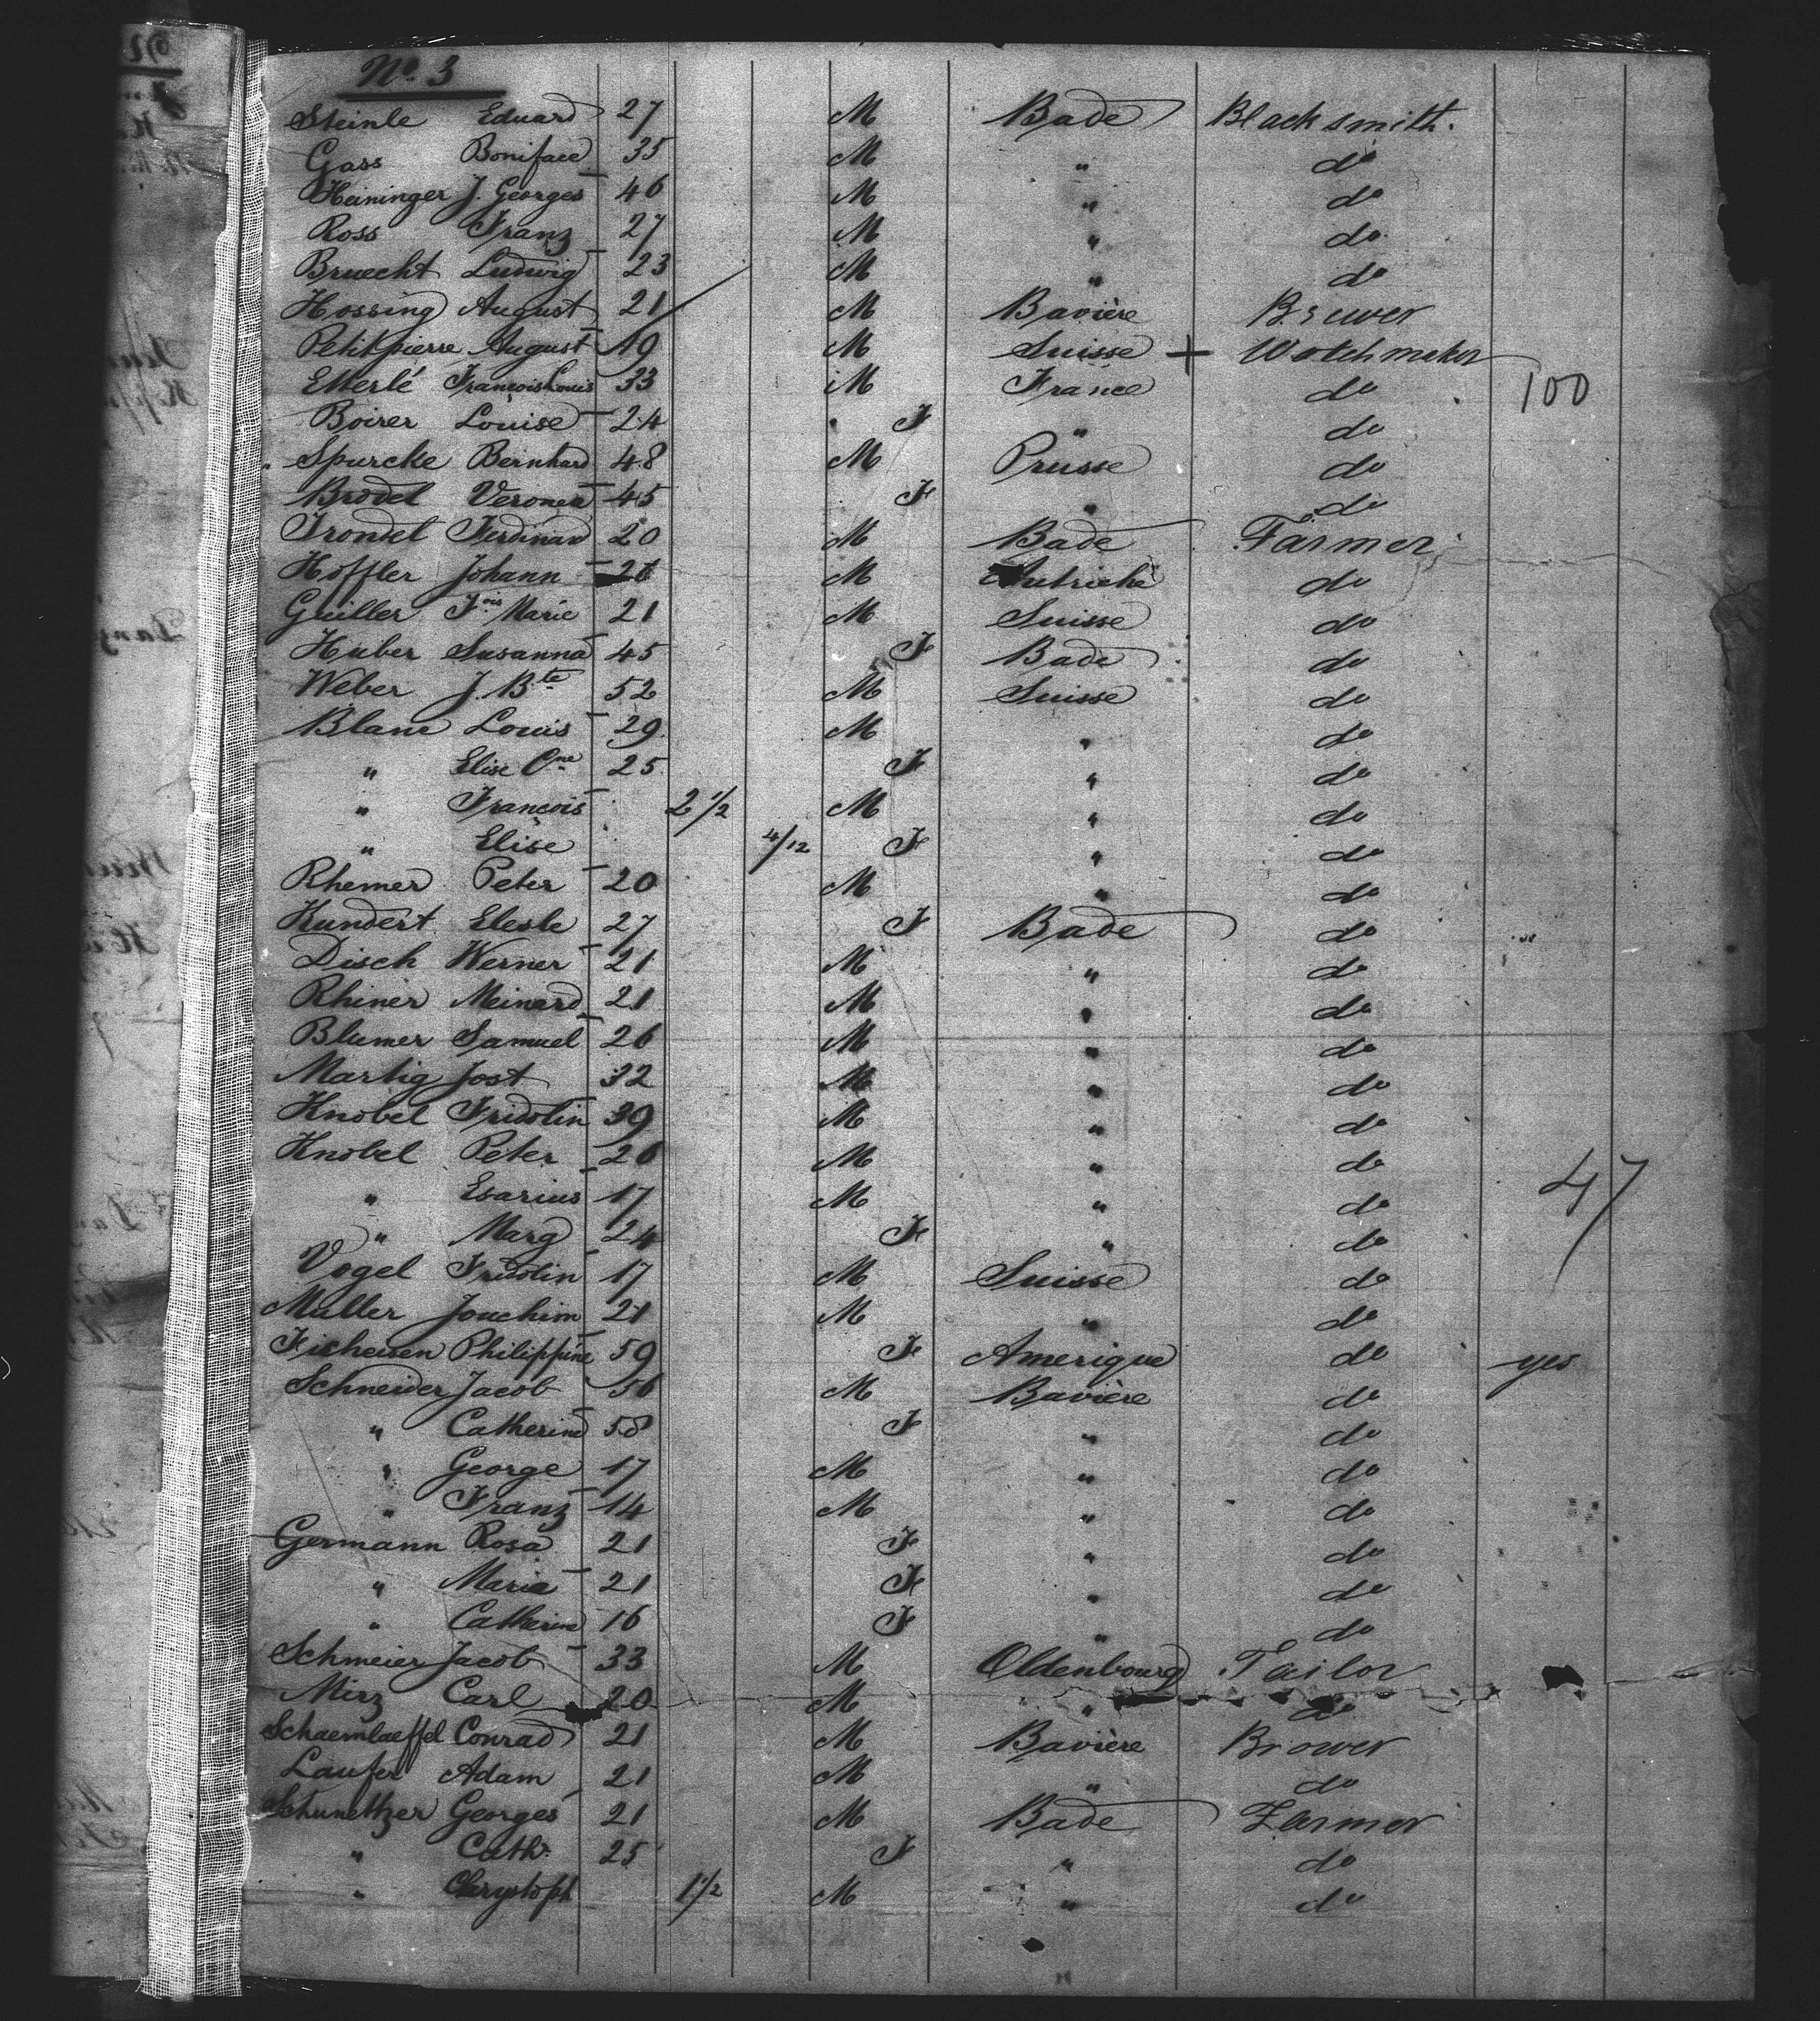 No. 3
Steinle Eduard 27 M Bade Blacksmith.
Gass Boniface 35 M " do
Heininger J. Georges 46 M " do
Ross Franz 27 M " do
Bruecht Ludwig 23 M " do
Hossing August 21 M Bavière Brewer
Petitpierre August 19 M Suisse + Watchmaker
Etterlé François Louis 33 M France do 100
Boirer Louise 24 F " do
Spurcke Bernhard 48 M Prusse do
Brodel 45 F " do
Trondel Ferdinand 20 M Bade Farmer
Hoffler Johann M Autriche do
Güller Fois Marie 21 M Suisse do
Huber Susanna 45 F Bade do
Weber J. Bte 52 M Suisse do
Blanc Louis 29 M " do
" Elise Cne 25 F " do
" François 2 1/2 M " do
" Elise 4/12 F " do
Rhemer Peter 20 M " do
Kundert 27 F Bade do
Disch Werner 21 M " do
Rhiner Meinard 21 M " do
Blumer Samuel 26 M " do
Martig Jost 32 M " do
Knobel Fridolin 39 M " do
Knobel Peter 26 M " do
" Esarius 17 M " do 47
" Marg 24 F " do
Vogel Fridolin 17 M Suisse do
Muller Jouchim 21 M " do
Philippine 59 F Amerique do yes
Schneider Jacob 56 M Bavière do
" Catherine 58 F " do
" George 17 M " do
" Franz 14 M " do
Germann Rosa 21 F " do
" Maria 21 F " do
" Catherine 16 F " do
Schmeier Jacob 33 M Oldenbourg Tailor
Mirz Carl 20 M " do
Schaemlaeffel Conrad 21 M Bavière Brower
Laufer Adam 21 M " do
Schunettzer Georges 21 M Bade Farmer
" Cath. 25 F " do
" Chrystoph 1 1/2 M " do